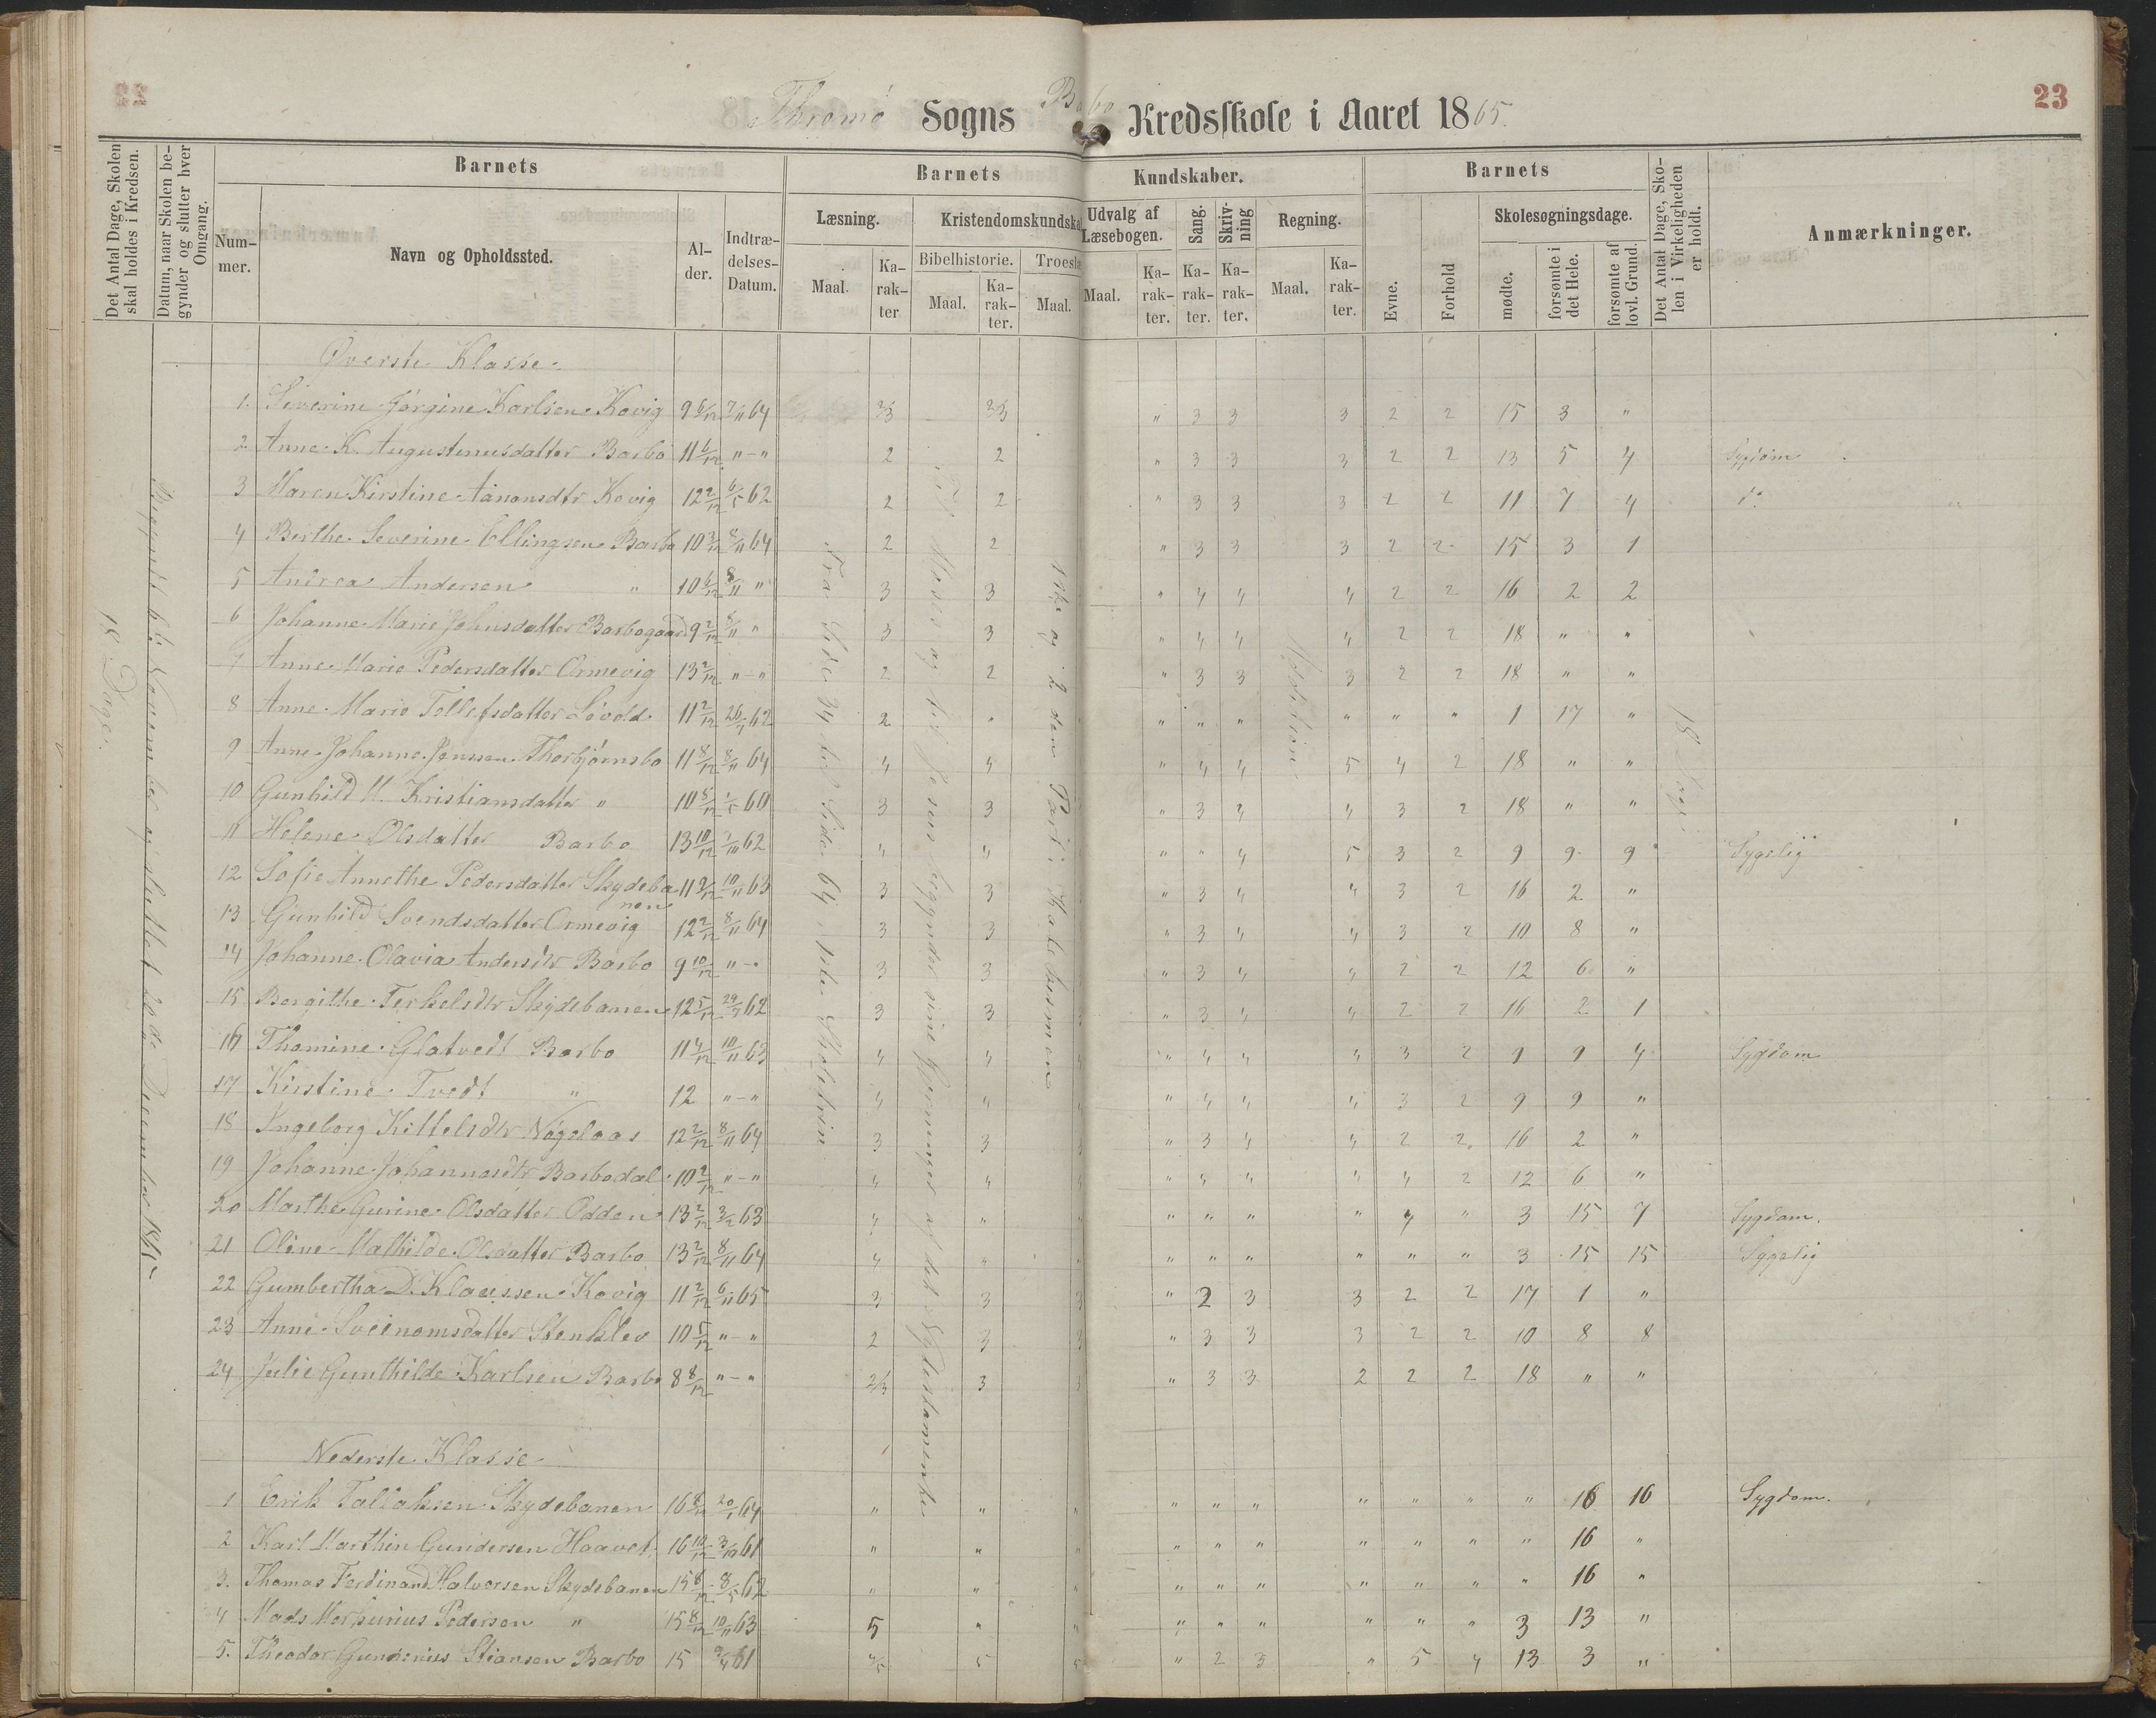 23
Thromø Sogns Barbo Kredsskole i Aaret 1865.
Det Antal Dage, Skolen skal holdes i Kredsen.
Datum, naar Skolen begynder og slutter hver Omgang.
Barnets
Barnets
Kundskaber.
Barnets
Det Antal Dage, Skolen i Virkeligheden er holdt.
Anmærkninger.
Nummer.
Navn og Opholdssted.
Alder.
Indtrædelses-Datum.
Læsning.
Kristendomskundska
Udvalg af Læsebogen.
Sang.
Skrivning
Regning.
Evne.
Forhold
Skolesøgningsdage.
Bibelhistorie.
Troeslæ
mødte.
forsømte i det Hele.
forsømte af lovl. Grund.
Maal.
Karakter
Maal.
Karakter.
Maal.
Maal.
Karakter.
Karakter.
Karakter.
Maal.
Karakter.
18 Dage.
Øverste Klasse.
1. Severine Jørgine Karlsen Kovig 9 6/12 7/11 64 2/3 2/3 " 3 3 3 2 2 15 3 "
2 Anne K. Augustinusdatter Barbo 11 6/12 "-" 2 2 " 3 3 3 2 2 13 5 4 Sygdom
3 Maren Kirstine Aanonsdtr Kovig 12 2/12 6/5 62 2 2 " 3 3 3 2 2 11 7 4 do
4 Berthe Severine Ellingsen Barbo 10 3/12 8/11 64 2 2 " 3 3 3 2 2 15 3 1
5 Andrea Andersen " 10 6/12 8/11 " 3 3 " 4 4 4 2 2 16 2 2
6 Johanne Marie Johnsdatter Barbogaard 9 2/12 8/11 " 3 3 " 4 4 4 2 2 18 " "
7 Anne Marie Pedersdatter Ormevig 13 2/12 "-" 2 2 " 3 3 3 2 2 18 " "
8 Anne Marie Tellefsdatter Løvold 11 2/12 62 2 " " " " " " " 1 17 "
9 Anne Johanne Jenssen Thorbjørnsbo 11 8/12 8/11 64 4 4 " 4 4 5 4 2 18 " "
10 Gunhild M. Kristiansdatter " 10 5/12 60 3 3 " 3 4 4 3 2 18 " "
11 Helene Olsdatter Barbo 13 10/12 62 4 4 " " 4 5 3 2 9 9 9 Sygelig
12 Sofie Annethe Pedersdatter Skydebanen 11 9/12 10/11 63 3 3 " 3 4 4 3 2 16 2 "
13 Gunhild Svendsdatter Ormevig 12 2/12 8/11 64 3 3 " 3 4 4 3 2 10 8 "
14 Johanne Olavia Andersdtr Barbo 9 10/12 "-" 3 3 " 3 4 4 2 2 12 6 "
15 Borgithe Terkelsdtr Skydebanen 12 5/12 62 3 3 " 3 4 4 2 2 16 2 1
16 Thomine Glatvedt Barbo 11 4/12 10/11 63 4 4 " 4 4 4 3 2 9 9 4 Sygdom
17 Kirstine Tvedt " 12 "-" 4 4 " 4 4 4 3 2 9 9 "
18 Ingeborg Kittelsdtr Nøgelaas 12 2/12 8/11 64 3 3 " 3 4 4 2 2 16 2 "
19 Johanne Johannesdtr Barbodal 10 2/12 "-" 4 4 " 4 4 4 4 2 12 6 "
20 Marthe Gurine Olsdatter Odden 13 2/12 3/2 63 4 " " " " " 4 " 3 15 7 Sygdom.
21 Oline Mathilde Olsdatter Barbo 13 2/12 8/11 64 4 " " " " " " " 3 15 15 Sygelig
22 Gumbertha D. Klaussen Kovig 11 2/12 6/11 65 3 3 " 2 3 3 2 2 17 1 "
23 Anne Sveinomsdatter Stenklev 10 5/12 "-" 2 3 " 3 3 3 2 2 10 8 8
24 Julie Gunthilde Karlsen Barbo 8 8/12 "-" 2/3 3 " 3 3 2 2 2 18 " "
Fra Side 34 til Side 64
Moses og til Jesus begynder sine Gjerninger af det Nytestamente
1ste og 2den Part i Katekismen
Addition
18 Dage
Nederste Klasse
1 Erik Tallaksen Skydebanen 16 8/12 64 " " " " " " " " " 16 16 Sygdom.
2 Karl Marthin Gundersen Haavet 16 10/12 3/10 61 " " " " " " " " " 16 "
3. Thomas Ferdinand Halvorsen Skydebanen 15 8/12 8/5 62 " " " " " " " " " 16 "
4 Mads Pedersen " 15 8/12 10/11 63 5 " " " " " " " 3 13 "
5. Theodor Gunderius Stiansen Barbo 15 61 4/5 5 " 2 3 " 5 4 13 3 "